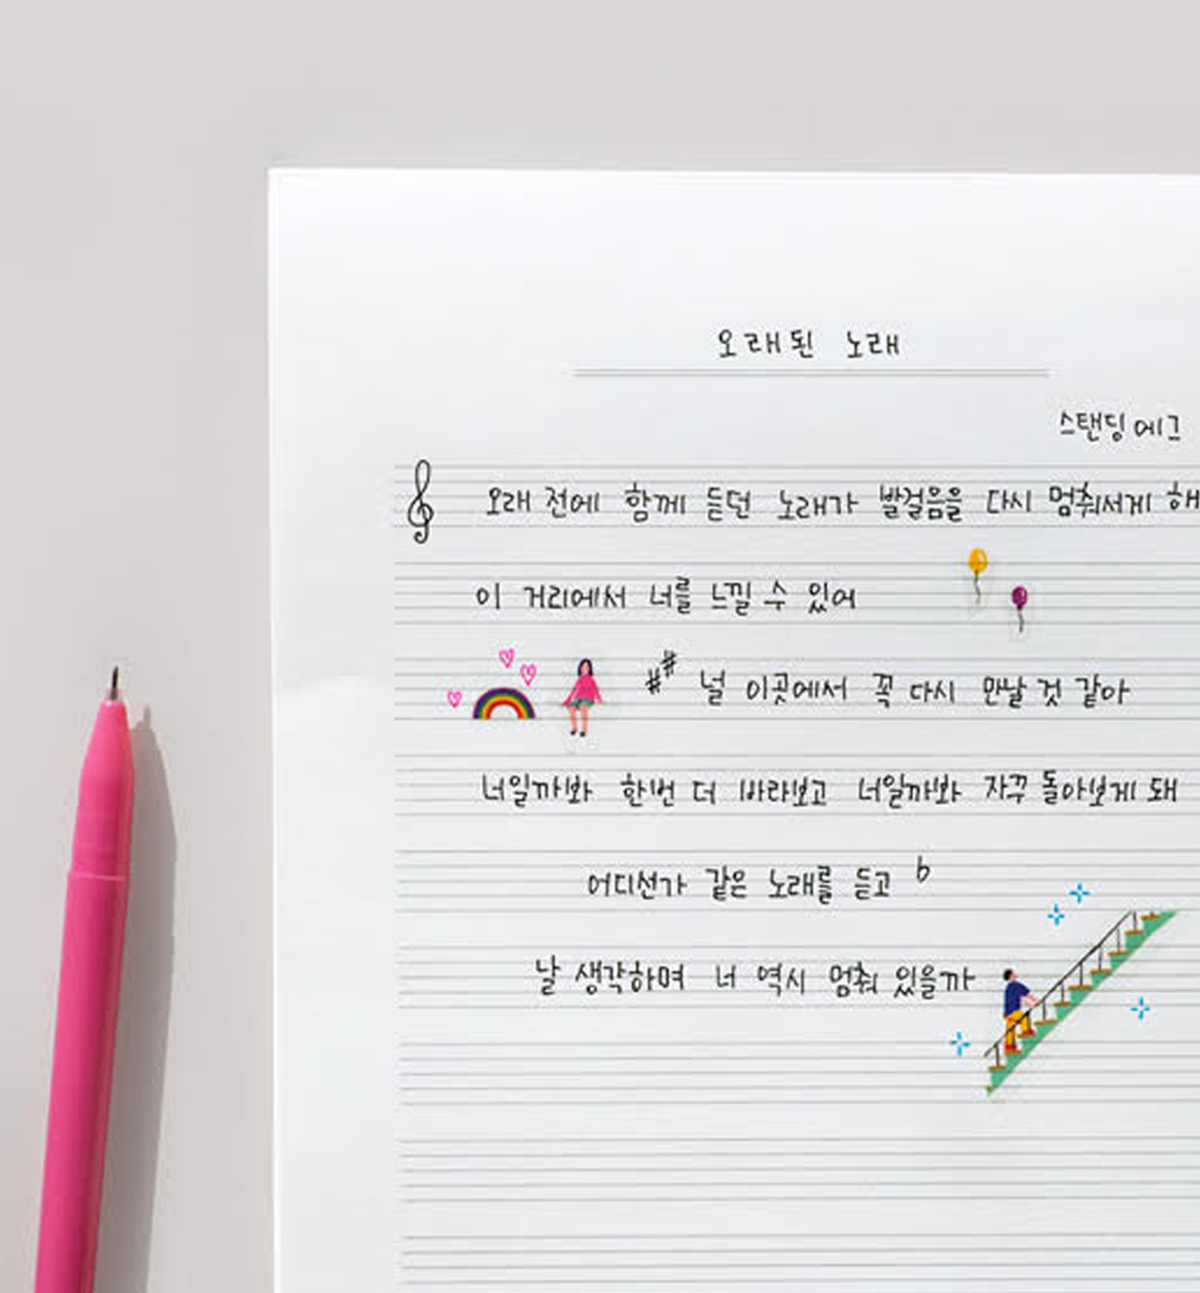 오래된 노래
스탠딩 에그
오래 전에 함께 듣던 노래가 발걸음을 다시 멈춰서게 해
이 거리에서 너를 느낄 수 있어
널 이곳에서 꼭 다시 만날 것 같아
너일까봐 한번 더 바라보고 너일까봐 자꾸 돌아보게 돼
어디선가 같은 노래를 듣고
날 생각하며 너 역시 멈춰 있을까